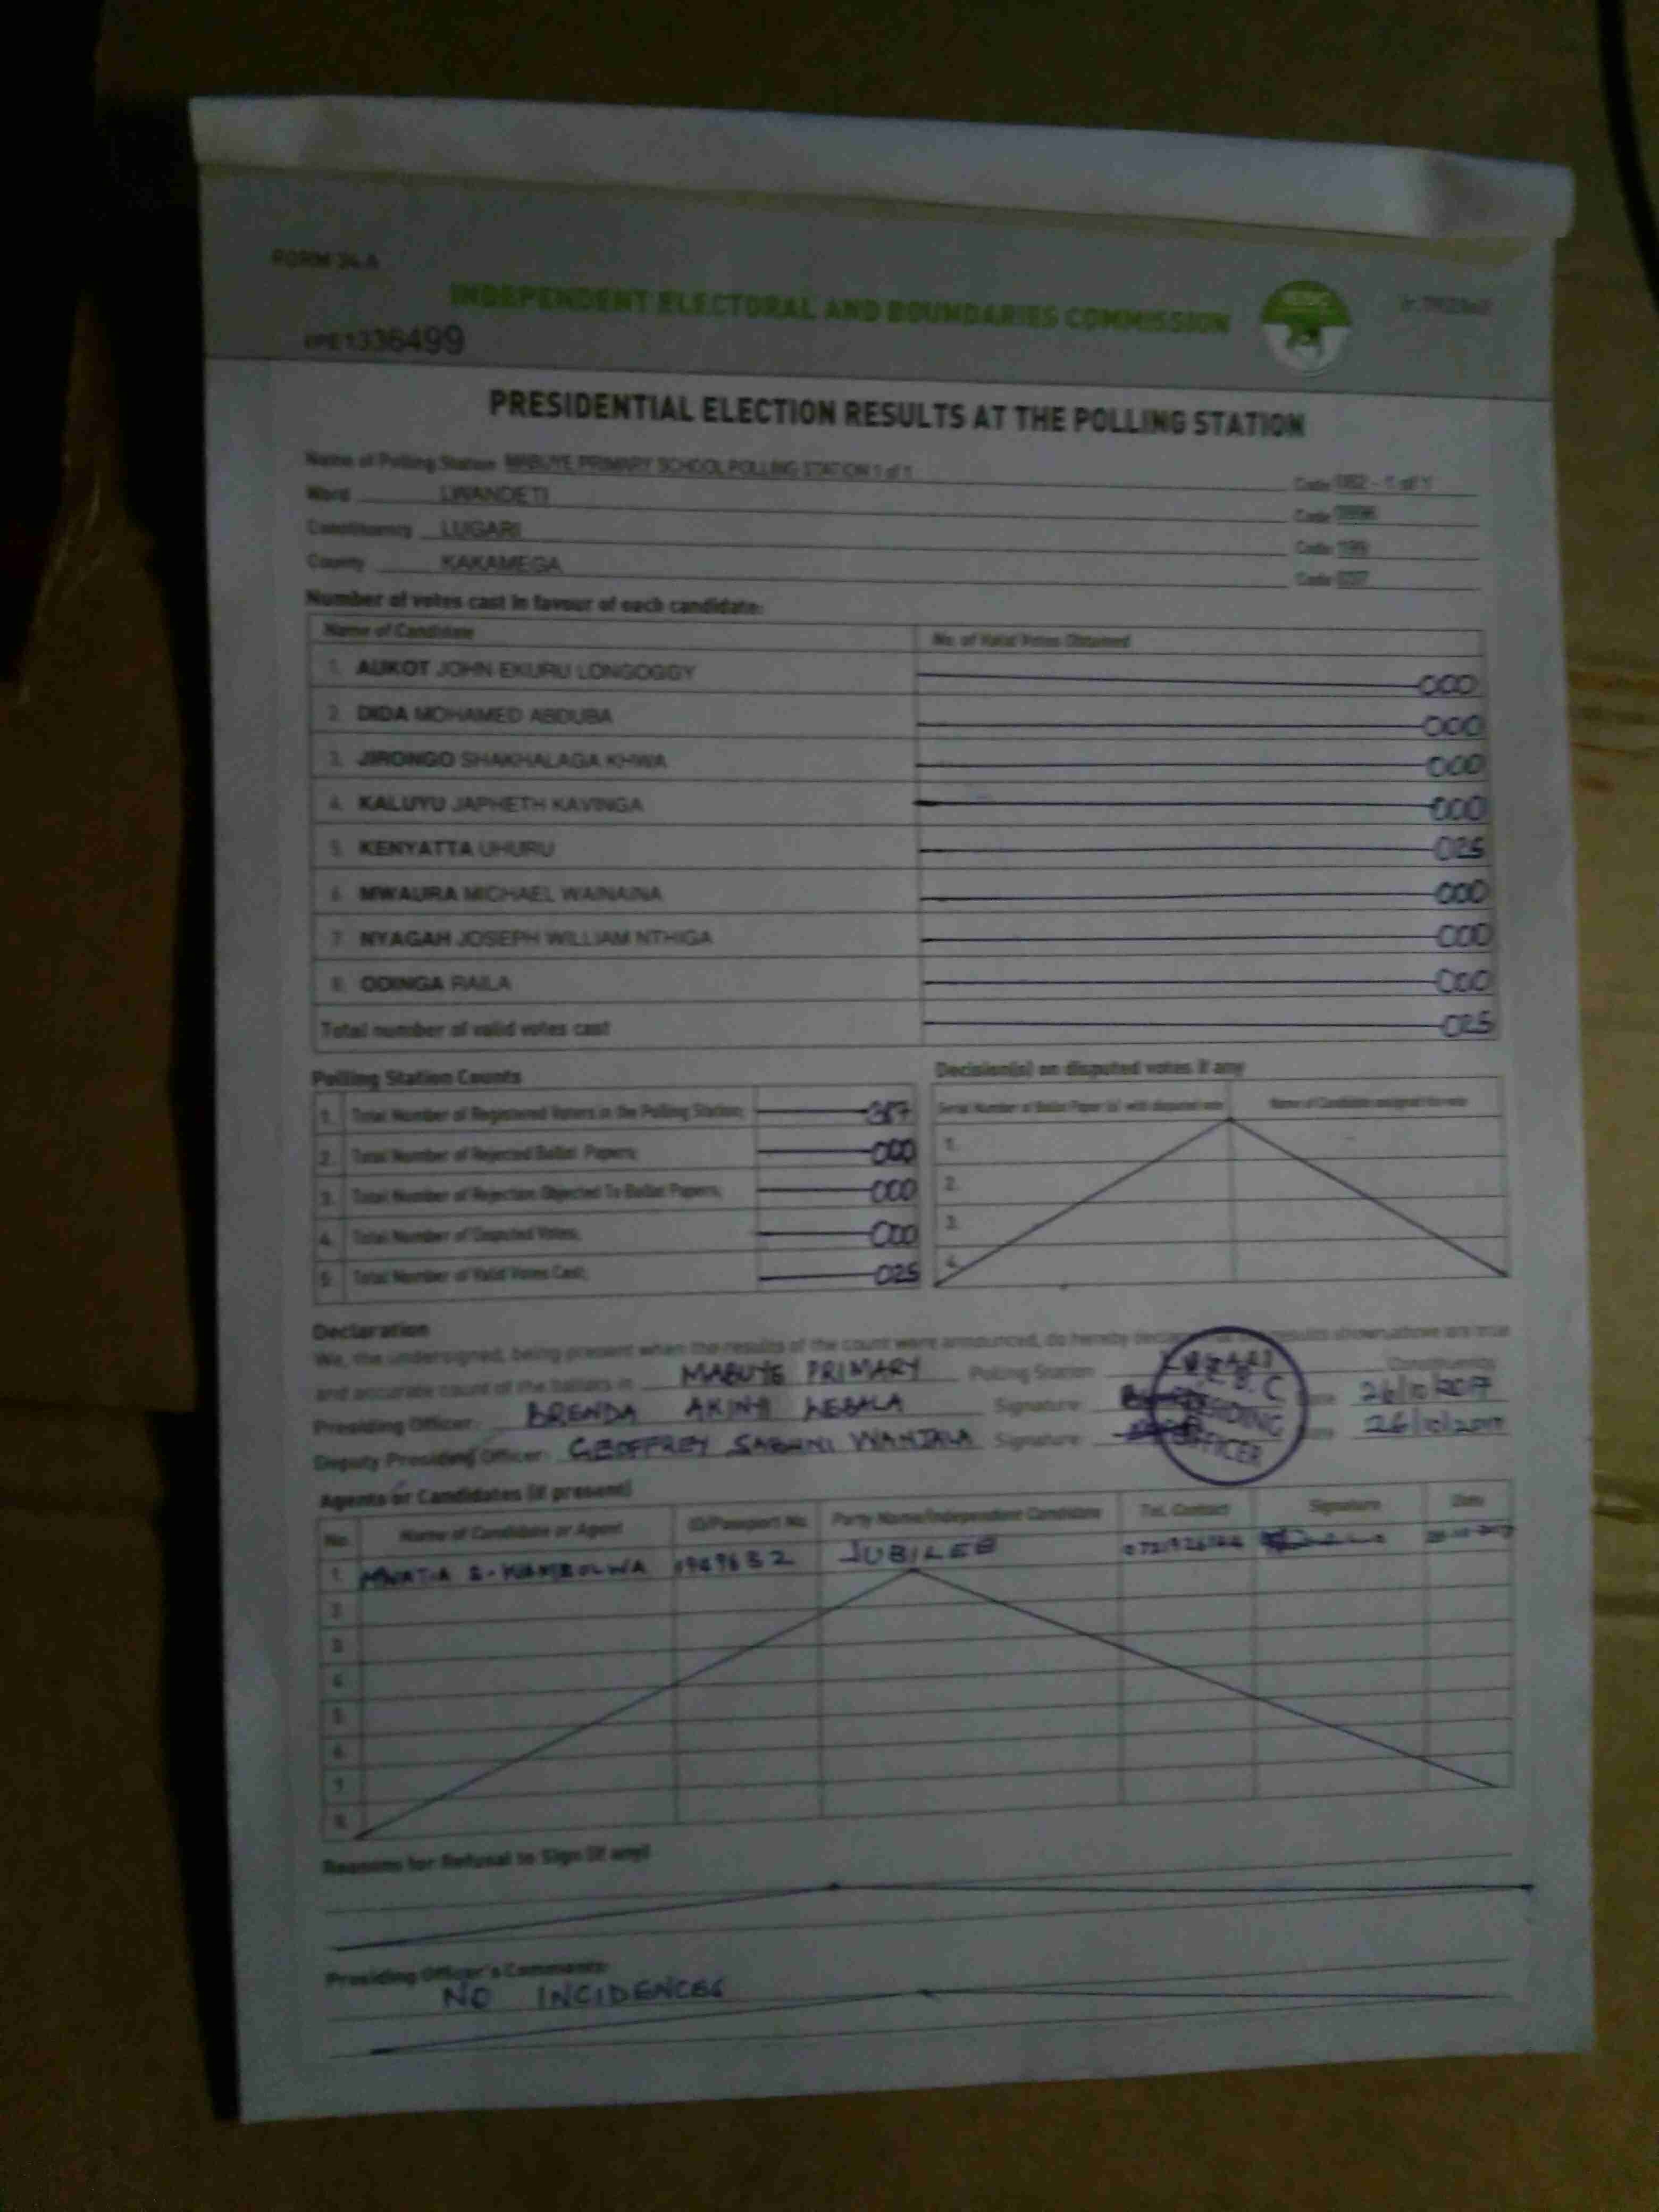 FORM 34A
INDEPENDENT ELECTORAL AND BOUNDARIES COMMISSION
PE1336499
PRESIDENTIAL ELECTION RESULTS AT THE POLLING STATION
Name of Polling Station MABUYE PRIMARY SCHOOL POLLING STATION 1 of 1 Code 082 - 1 of 1
Ward LWANDETI Code
Constituency LUGARI Code
County KAKAMEGA Code 037
Number of votes cast in favour of each candidate:
Name of Candidate No. of Valid Votes Obtained
1. AUKOT JOHN EKURU LONGOGGY 000
2. DIDA MOHAMED ABDUBA 000
3. JIRONGO SHAKHALAGA KHWA 000
4. KALUYU JAPHETH KAVINGA 000
5. KENYATTA UHURU 025
6. MWAURA MICHAEL WAINAINA 000
7. NYAGAH JOSEPH WILLIAM NTHIGA 000
8. ODINGA RAILA 000
Total number of valid votes cast 025
Polling Station Counts
1. Total Number of Registered Voters in the Polling Station;
2. Total Number of Rejected Ballot Papers; 000
3. Total Number of Rejection Objected To Ballot Papers; 000
4. Total Number of Disputed Votes; 000
5. Total Number of Valid Votes Cast; 025
Decision(s) on disputed votes if any
Serial Number of Ballot Paper (s) with disputed vote Name of Candidate assigned the vote
1.
2.
3.
4.
Declaration
We, the undersigned, being present when the results of the count were announced, do hereby results shown above are true
and accurate count of the ballots in MABUYE PRIMARY Polling Station Constituency
Presiding Officer: BRENDA AKINYI Signature: 26/10/2017
Deputy Presiding Officer: GEOFFREY WANJALA Signature: 26/10/2017
PRESIDING
OFFICER
Agents or Candidates (if present)
No. Name of Candidate or Agent ID/Passport No. Party Name/Independent Candidate Tel. Contact Signature Date
1. JUBILEE
2.
3.
4.
5.
6.
7.
8.
Reasons for Refusal to Sign (if any)
Presiding Officer's Comments:
NO INCIDENCES